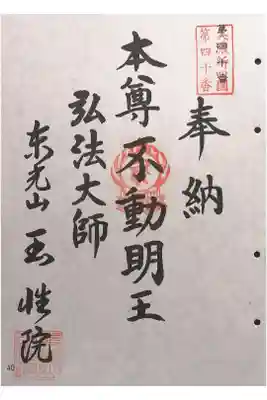 第四十番
奉納
本尊不動明王
弘法大師
東光山玉性院
40